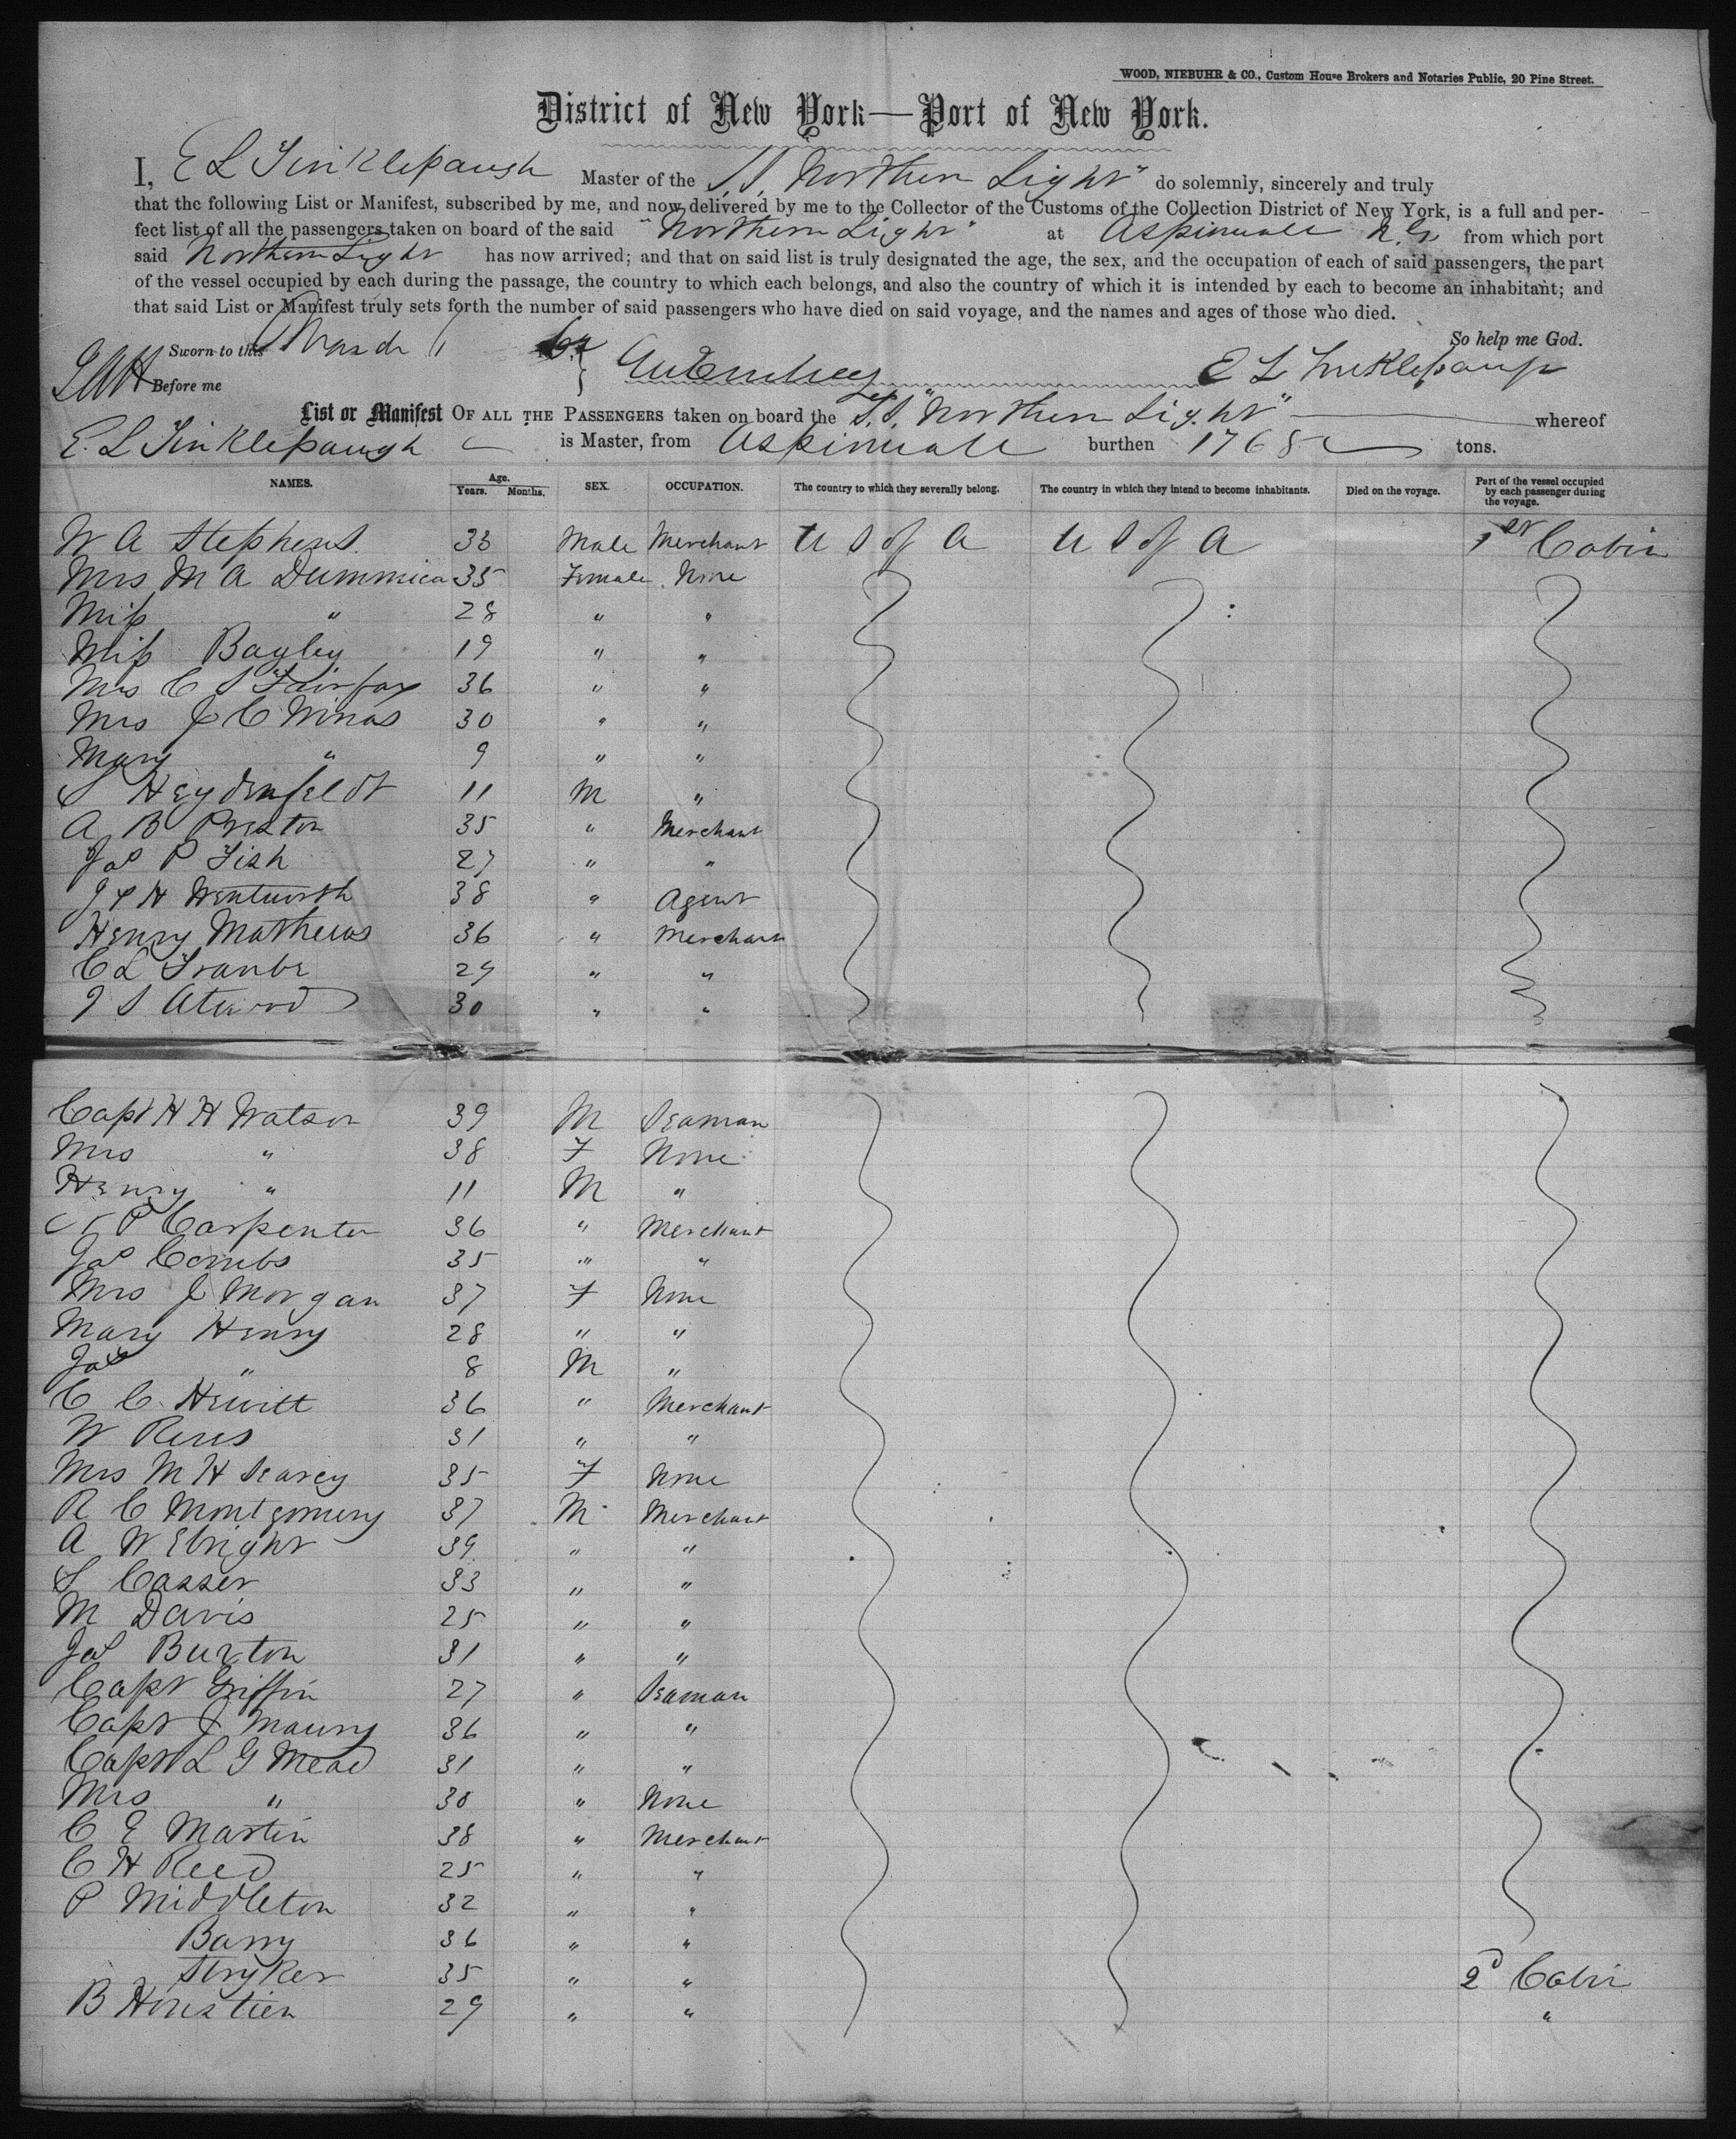 WOOD, NIEBUHR & CO., Custom House Brokers and Notaries Public, 20 Pine Street.
District of New York—Port of New York.
I, E L Tinklepaugh Master of the S.S. "Northern Light" do solemnly, sincerely and truly
that the following List or Manifest, subscribed by me, and now delivered by me to the Collector of the Customs of the Collection District of New York, is a full and per-
fect list of all the passengers taken on board of the said "Northern Light" at Aspinwall N. G. from which port
said Northern Light has now arrived; and that on said list is truly designated the age, the sex, and the occupation of each of said passengers, the part
of the vessel occupied by each during the passage, the country to which each belongs, and also the country of which it is intended by each to become an inhabitant; and
that said List or Manifest truly sets forth the number of said passengers who have died on said voyage, and the names and ages of those who died.
So help me God.
Sworn to this March
Before me E L Tinklepaugh
List or Manifest OF ALL THE PASSENGERS taken on board the S.S. "Northern Light" whereof
E. L Tinklepaugh is Master, from Aspinwall burthen 1768 tons.
NAMES. Age. Years. Months. SEX. OCCUPATION. The country to which they severally belong. The country in which they intend to become inhabitants. Died on the voyage. Part of the vessel occupied by each passenger during the voyage.
W A Stephens 33 Male Merchant U S of A U S of A 1st Cabin
Mrs M A 35 Female None
Miss " 28 " "
Miss Bagley 19 " "
Mrs C S Fairfax 36 " "
Mrs J C Winas 30 " "
Mary " 9 " "
S Heydenfeldt 11 M "
A B Preston 35 " Merchant
Jas P Fish 27 " "
J P H Wentworth 38 " Agent
Henry Mathews 36 " Merchant
C L 29 " "
J S Atwood 30 " "
Capt H H Watson 39 M Seaman
Mrs " 38 F None
Henry " 11 M "
P Carpenter 36 " Merchant
Jas Combs 35 " "
Mrs J Morgan 37 F None
Mary Henry 28 " "
Jas " 8 M "
C C Hewitt 36 " Merchant
W 31 " "
Mrs M H Searcy 35 F None
R C Montgomery 37 M Merchant
A W Ebright 39 " "
S Casser 33 " "
M Davis 25 " "
Jas Burton 31 " "
Capt Griffin 27 " Seaman
Capt J Maury 36 " "
Capt L G Mead 31 " "
Mrs " 30 " None
C E Martin 38 " Merchant
C H Reed 25 " "
P Middleton 32 " "
Barry 36 " "
Stryker 35 " " 2d Cabin
B 29 " " "